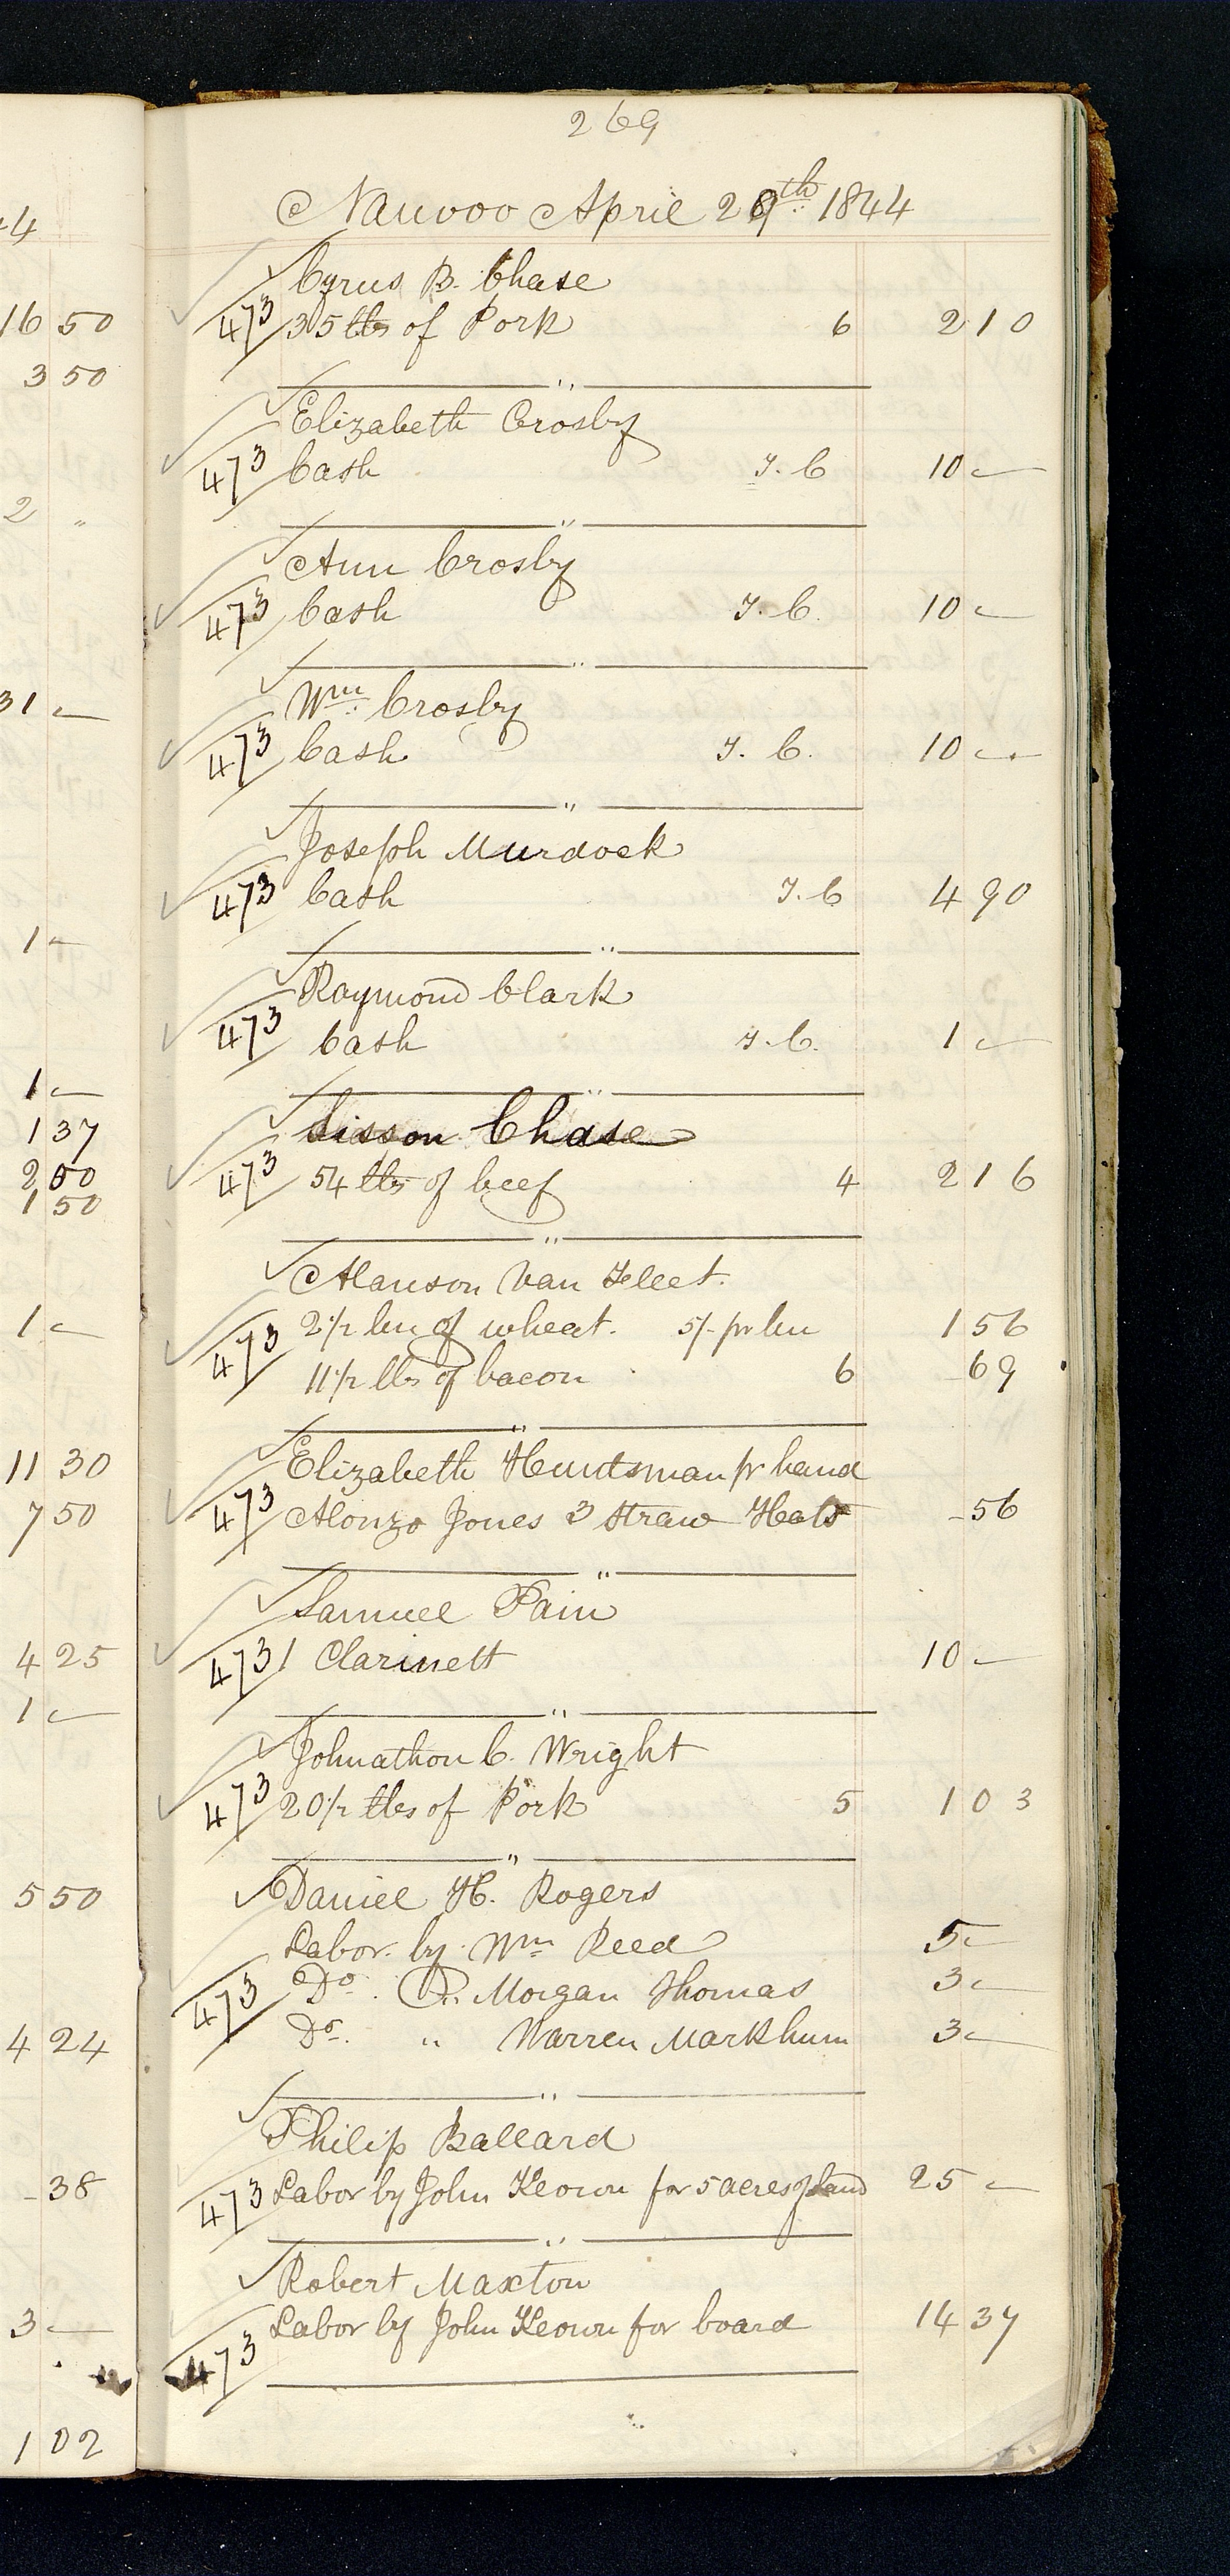 269
Nauvoo April 29th 1844
Cyrus B. Chase
473 35 lbs of Pork 6 2 10
"
Elizabeth Crosby
473 Cash T. C 10 —
"
Ann Crosby
473 Cash T. C. 10 —
"
Wm Crosby
473 Cash T. C. 10 —
"
Joseph Murdock
473 Cash T. C 4 90
"
Raymond Clark
473 Cash T. C. 1 —
"
Sisson Chase
473 54 lbs of beef 4 2 16
"
Alanson Van Fleet.
473 2 1/2 bu of wheat. 5/- pr bu 1 56
11 1/2 lbs of bacon 6 69
"
Elizabeth Huntsman pr hand
473 Alonzo Jones 3 Straw Hats 56
"
Samuel Pain
473 1 Clarinett 10 —
"
Johnathon C. Wright
473 20 1/2 lbs of Pork 5 1 03
"
Daniel H. Rogers
Labor by Wm Reed 5 —
473 Do. Morgan Thomas 3 —
Do. " Warren Markhum 3 —
"
Philip Ballard
473 Labor by John Keown for 5 acres of land 25 —
"
Robert Maxton
473 Labor by John Keown for board 14 37
4
16 50
3 50
2 "
31 —
1 —
1 —
1 37
2 50
1 50
1 —
11 30
7 50
4 25
1 —
5 50
4 24
38
3 —
1 02